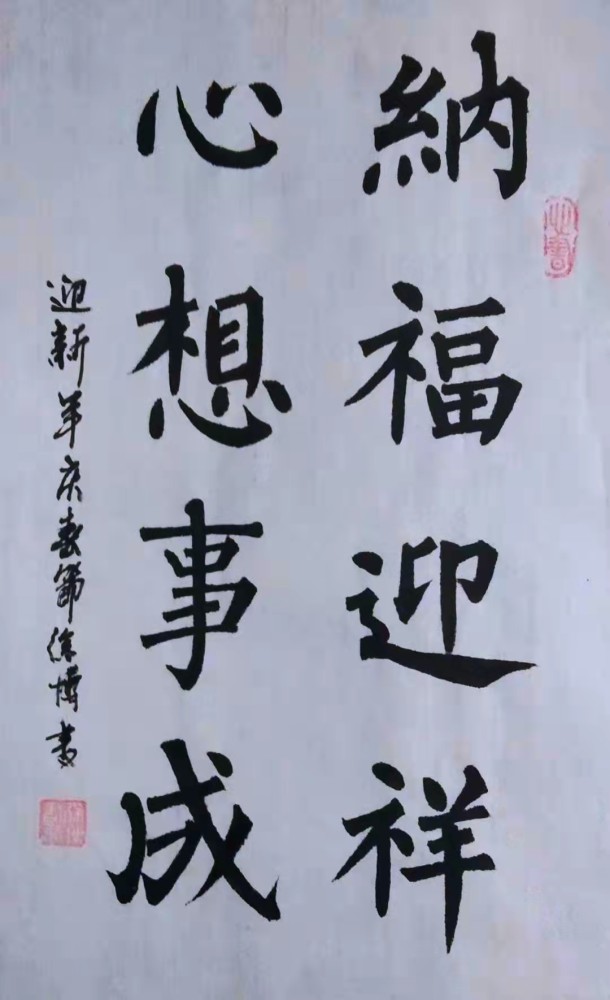 納福迎祥
心想事成
迎新年庆春節徐博書